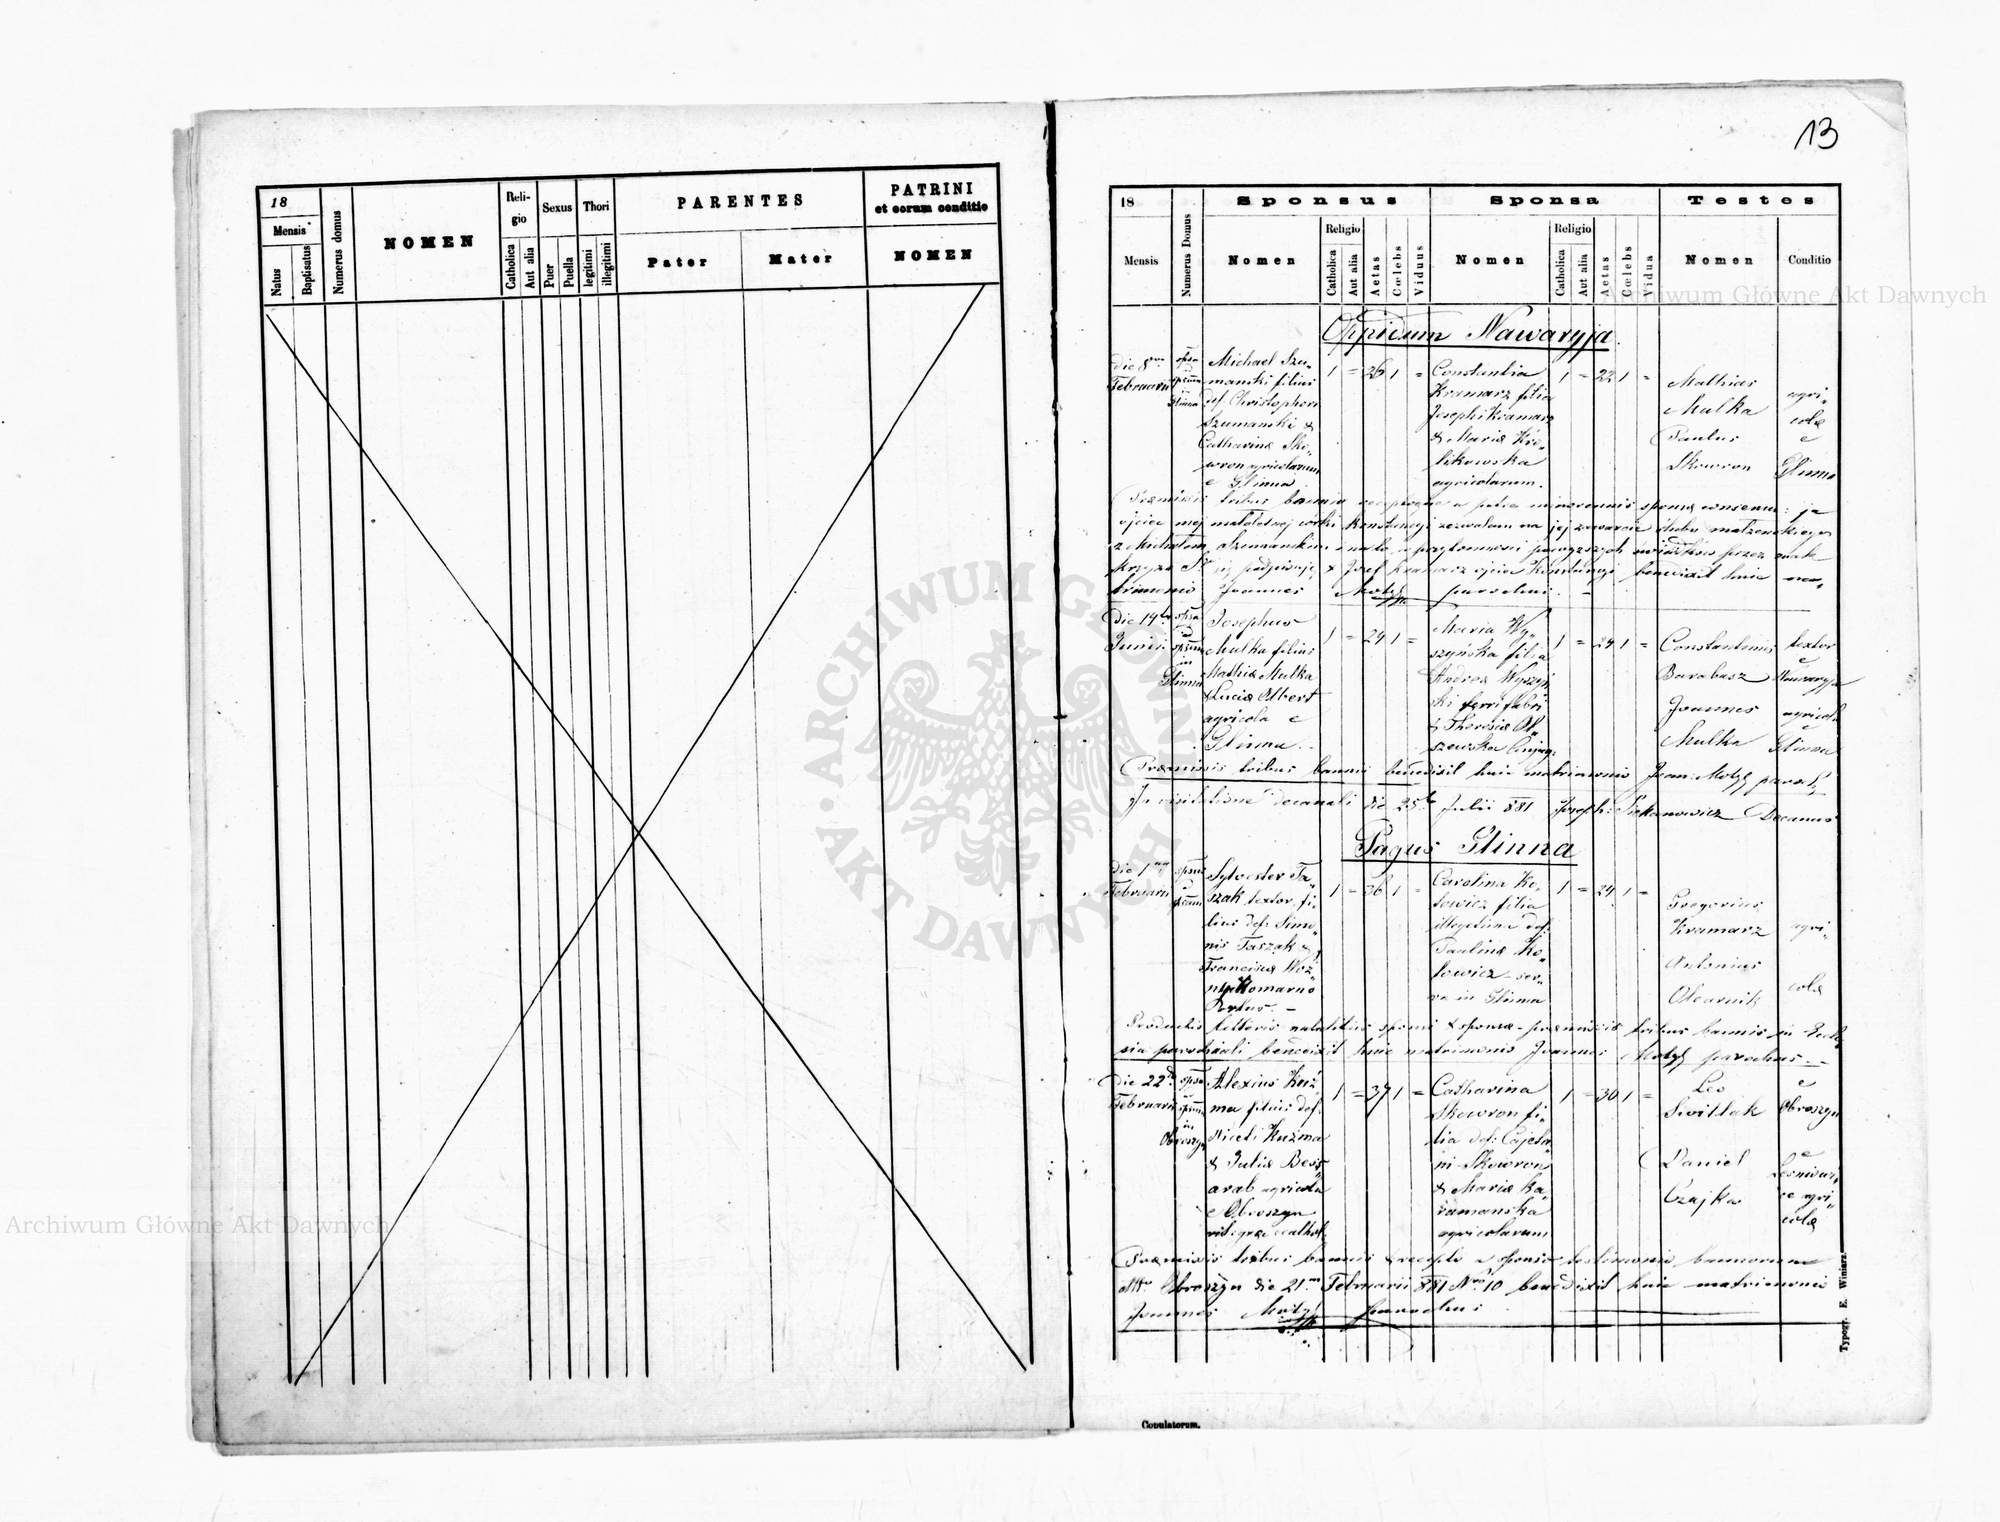 13
18
Mensis
Natus
Baptisatus
Numerus domus
NOMEN
Religio
Catholica
Aut alia
Sexus
Puer
Puella
Thori
legitimi
illegitimi
PARENTES
Pater
Mater
PATRINI
et eorum conditio
NOMEN
18
Mensis
Numerus Domus
Sponsus
Nomen
Religio
Catholica
Aut alia
Aetas
Cœlebs
Viduus
Sponsa
Nomen
Religio
Catholica
Aut alia
Aetas
Cœlebs
Vidua
Testes
Nomen
Conditio
Oppidum Nawaryja.
die 8va
Februarii
Glinna
Michael Szu-
manski filius
def. Christophori
Szumanski &
Catharinæ Sko-
wron agricolarum
e Glinna
1 = 26 1 =
Constantia
Kramarz filia
Josephi Kramarz
& Mariæ Kró-
likowska
agricolarum.
1 = 22 1 =
Mathias
Mulka
Paulus
Skowron
agri-
colæ
e
Glinna
Præmissis tribus bannis a patre minorennis sponsæ consensu: ja
ojciec mej małoletnej córki Konstancyi zezwalam na jej zawarcie ślubu małżenskiego
z Michałem Szumanskim i na to w przytomności powyższych świadków przez znak
krzyża się podpisuję † Józef Kramarz ojciec Konstancyi benedixit huic ma-
trimonio Joannes Motyl parochus.
Die 14ta
Junii
Glinna
Josephus
Mulka filius
Mathiæ Mulka
& Luciæ Olbert
agricola e
Glinna.
1 = 24 1 =
Maria Wy-
szyńska filia
Andreæ Wyszyń-
ski ferri fabri
& Theresiæ Ol-
szewska conjug:
1 = 24 1 =
Constantinus
Barabasz
Joannes
Mulka
textor
e
Nawaryja
agricola
e
Glinna
Præmissis tribus bannis benedixit huic matrimonio Joan: Motyl paroch:
In visitatione Decanali die 25ta Julii 881 Joseph: Decanus
Pagus Glinna
Die 1ma
Februarii
Sylvester Ta-
szak textor, fi-
lius def: Simo-
nis Taszak &
Franciscæ Woź-
Komarno
1 = 36 1 =
Carolina Ko-
towicz filia
illegitima def:
Paulinæ Ko-
towicz - ser-
va in Glinna
1 = 24 1 =
Gregorius
Kramarz
Antonius
Olearnik
agri-
colæ
Productis litteris natalitiis sponsi & sponsæ - præmissis tribus bannis in Eccle-
sia parochiali benedixit huic matrimonio Joannes Motyl parochus.
Die 22da
Februarii
in
Obroszyn
Alexius Kuź-
ma filius def:
Niceti Kuźma
& Juliæ Bess-
arab agricola
e Obroszyn
rit: græc: cathol.
1 = 37 1 =
Catharina
Skowron fi-
lia def: Cajeta-
ni Skowron
& Mariæ Ka-
ramanska
agricolarum
1 = 30 1 =
Leo
Switlak
Daniel
Czajka
e
Obroszyn
e
agri-
colæ
Præmissis tribus bannis & recepto a sponso testimonio bannorum
dtto Obroszyn die 21ma Februarii 881 Nro 10 benedixit huic matrimonio
Joannes Motyl parochus
Typogr. E. Winiarz.
Copulatorum.
Archiwum Główne Akt Dawnych
Archiwum Główne Akt Dawnych
ARCHIWUM GŁÓWNE
AKT DAWNYCH